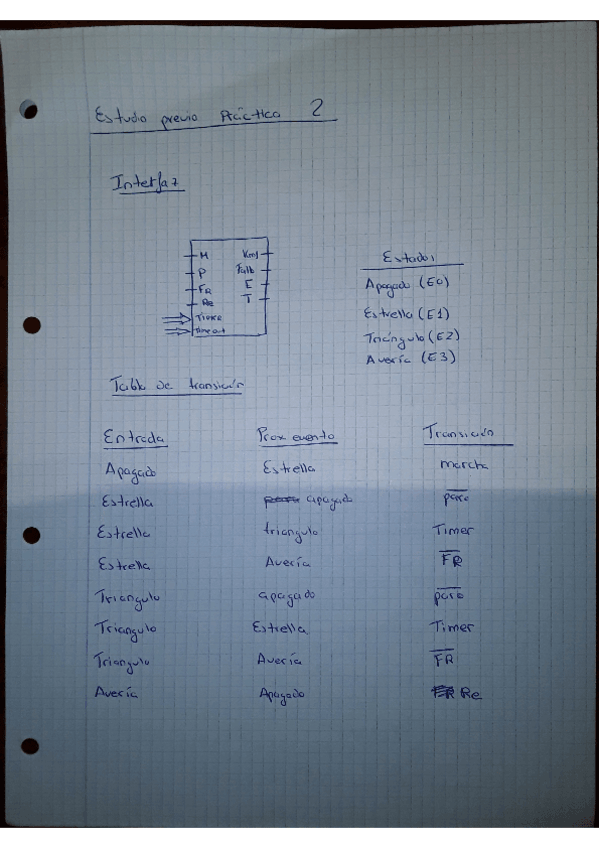 Estudio previo Práctica 2
Interfaz
M
P
FR
Re
Timer
Time out
Kms
Fallo
E
T
Estados
Apagado (E0)
Estrella (E1)
Triángulo (E2)
Avería (E3)
Tabla de transición
Entrada Prox evento Transición
Apagado Estrella marcha
Estrella apagado paro
Estrella triangulo Timer
Estrella Avería FR
Triangulo apagado paro
Triangulo Estrella Timer
Triangulo Avería FR
Avería Apagado Re